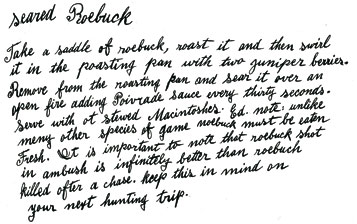 seared Roebuck
Take a saddle of roebuck, roast it and then swirl
it in the poasting pan with two juniper berries.
Remove from the roasting pan and sear it over an
open fire adding Poivrade sauce every thirty seconds.
serve with ot stewed Macintoshes. Ed. note: unlike
meny other species of game roebuck must be eaten
Fresh. It is important to note that roebuck shot
in ambush is infinitely better than roebuch
killed after a chase. keep this in mind on
your next hunting trip.